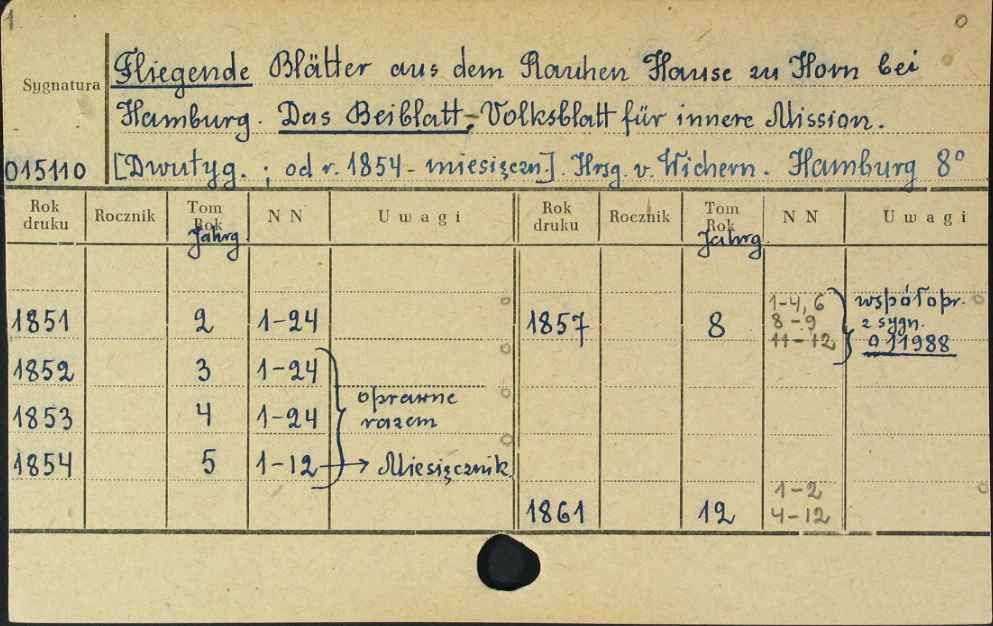 1 0
Sygnatura Fliegende Blätter aus dem Rauhen Hause zu Horn bei
Hamburg. Das Beiblatt-Volksblatt für innere Mission.
015110 [Dwutyg. ; od r. 1854 - miesięczn]. Hrsg. v. Wichern. Hamburg 8°
Rok druku Rocznik Tom Rok Jahrg. NN Uwagi Rok druku Rocznik Tom Rok Jahrg. NN Uwagi
1851 2 1-24 1857 8 1-4, 6 8-9 11-12 współopr. z sygn. 911988
1852 3 1-24 oprawne razem
1853 4 1-24
1854 5 1-12 → Miesięcznik
1861 12 1-2 4-12